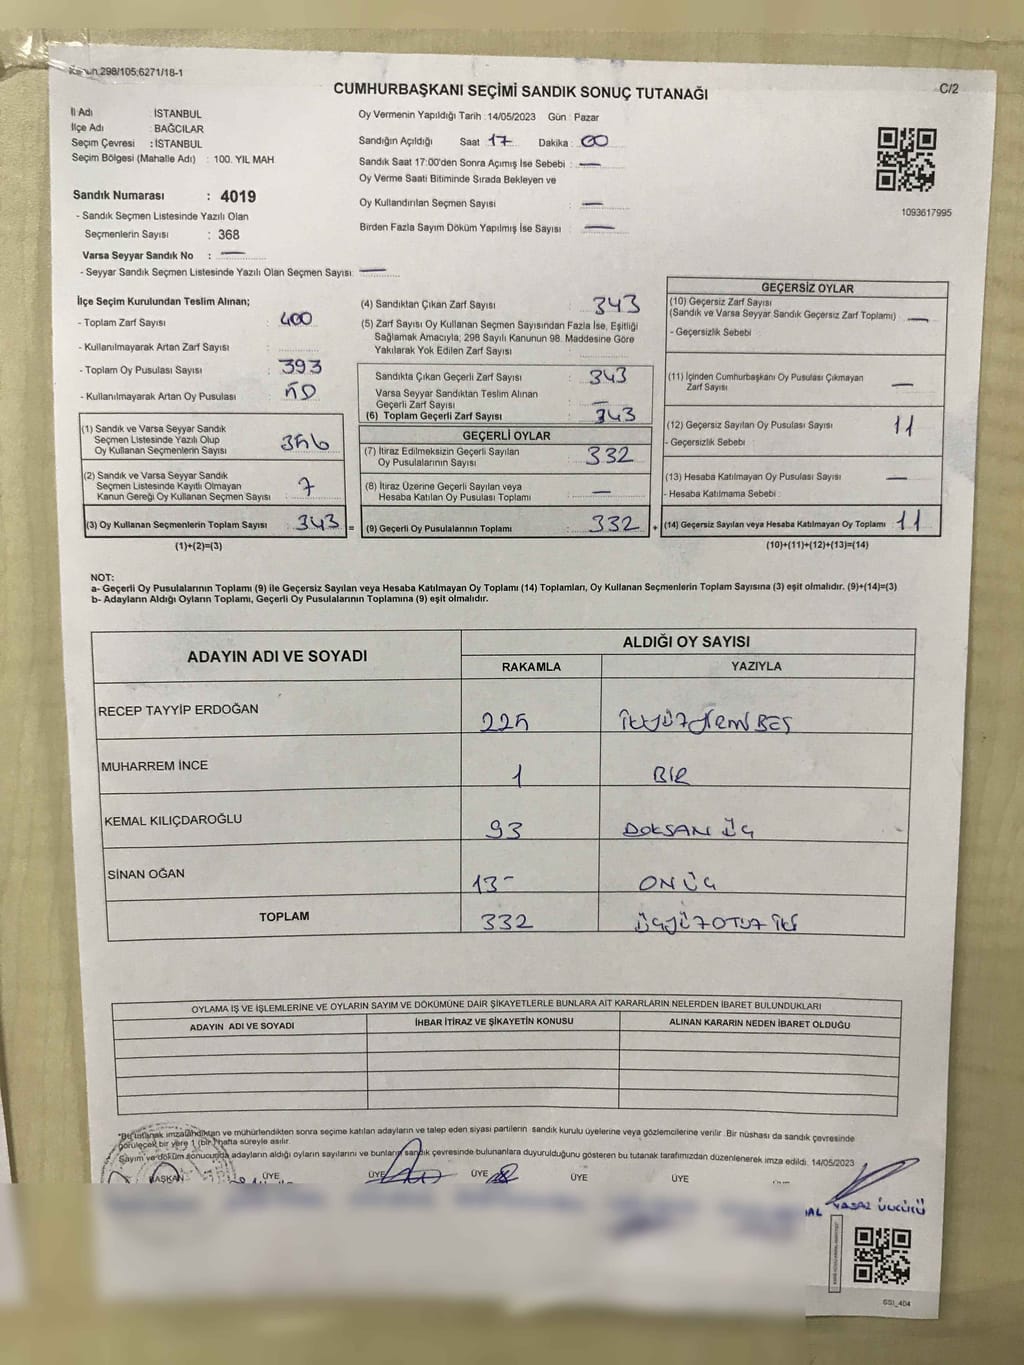 Kanun:298/105;6271/18-1
C/2
CUMHURBAŞKANI SEÇİMİ SANDIK SONUÇ TUTANAĞI
İl Adı : İSTANBUL
İlçe Adı : BAĞCILAR
Seçim Çevresi : İSTANBUL
Seçim Bölgesi (Mahalle Adı) : 100. YIL MAH
Sandık Numarası : 4019
- Sandık Seçmen Listesinde Yazılı Olan
Seçmenlerin Sayısı : 368
Varsa Seyyar Sandık No : —
- Seyyar Sandık Seçmen Listesinde Yazılı Olan Seçmen Sayısı: —
Oy Vermenin Yapıldığı Tarih : 14/05/2023 Gün : Pazar
Sandığın Açıldığı Saat 17 Dakika : 00
Sandık Saat 17:00'den Sonra Açımış İse Sebebi : —
Oy Verme Saati Bitiminde Sırada Bekleyen ve
Oy Kullandırılan Seçmen Sayısı : —
Birden Fazla Sayım Döküm Yapılmış İse Sayısı : —
1093617995
İlçe Seçim Kurulundan Teslim Alınan;
- Toplam Zarf Sayısı : 400
- Kullanılmayarak Artan Zarf Sayısı :
- Toplam Oy Pusulası Sayısı : 393
- Kullanılmayarak Artan Oy Pusulası :
(1) Sandık ve Varsa Seyyar Sandık
Seçmen Listesinde Yazılı Olup
Oy Kullanan Seçmenlerin Sayısı :
(2) Sandık ve Varsa Seyyar Sandık
Seçmen Listesinde Kayıtlı Olmayan
Kanun Gereği Oy Kullanan Seçmen Sayısı : 7
(3) Oy Kullanan Seçmenlerin Toplam Sayısı : 343 =
(1)+(2)=(3)
(4) Sandıktan Çıkan Zarf Sayısı : 343
(5) Zarf Sayısı Oy Kullanan Seçmen Sayısından Fazla İse, Eşitliği
Sağlamak Amacıyla; 298 Sayılı Kanunun 98. Maddesine Göre
Yakılarak Yok Edilen Zarf Sayısı :
Sandıkta Çıkan Geçerli Zarf Sayısı : 343
Varsa Seyyar Sandıktan Teslim Alınan
Geçerli Zarf Sayısı : —
(6) Toplam Geçerli Zarf Sayısı : 343
GEÇERLİ OYLAR
(7) İtiraz Edilmeksizin Geçerli Sayılan
Oy Pusulalarının Sayısı : 332
(8) İtiraz Üzerine Geçerli Sayılan veya
Hesaba Katılan Oy Pusulası Toplamı : —
(9) Geçerli Oy Pusulalarının Toplamı : 332 +
GEÇERSİZ OYLAR
(10) Geçersiz Zarf Sayısı
(Sandık ve Varsa Seyyar Sandık Geçersiz Zarf Toplamı) : —
- Geçersizlik Sebebi :
(11) İçinden Cumhurbaşkanı Oy Pusulası Çıkmayan
Zarf Sayısı : —
(12) Geçersiz Sayılan Oy Pusulası Sayısı : 11
- Geçersizlik Sebebi :
(13) Hesaba Katılmayan Oy Pusulası Sayısı : —
- Hesaba Katılmama Sebebi :
(14) Geçersiz Sayılan veya Hesaba Katılmayan Oy Toplamı : 11
(10)+(11)+(12)+(13)=(14)
NOT:
a- Geçerli Oy Pusulalarının Toplamı (9) ile Geçersiz Sayılan veya Hesaba Katılmayan Oy Toplamı (14) Toplamları, Oy Kullanan Seçmenlerin Toplam Sayısına (3) eşit olmalıdır. (9)+(14)=(3)
b- Adayların Aldığı Oyların Toplamı, Geçerli Oy Pusulalarının Toplamına (9) eşit olmalıdır.
ADAYIN ADI VE SOYADI ALDIĞI OY SAYISI
RAKAMLA YAZIYLA
RECEP TAYYİP ERDOĞAN 225 İKİYÜZYİRMİBEŞ
MUHARREM İNCE 1 BİR
KEMAL KILIÇDAROĞLU 93 DOKSAN ÜÇ
SİNAN OĞAN 13- ON ÜÇ
TOPLAM 332 ÜÇYÜZOTUZ İKİ
OYLAMA İŞ VE İŞLEMLERİNE VE OYLARIN SAYIM VE DÖKÜMÜNE DAİR ŞİKAYETLERLE BUNLARA AİT KARARLARIN NELERDEN İBARET BULUNDUKLARI
ADAYIN ADI VE SOYADI İHBAR İTİRAZ VE ŞİKAYETİN KONUSU ALINAN KARARIN NEDEN İBARET OLDUĞU
*Bu tutanak imzalandıktan ve mühürlendikten sonra seçime katılan adayların ve talep eden siyasi partilerin sandık kurulu üyelerine veya gözlemcilerine verilir. Bir nüshası da sandık çevresinde
görülecek bir yere 1 (bir) hafta süreyle asılır.
Sayım ve döküm sonucunda adayların aldığı oyların sayılarını ve bunların sandık çevresinde bulunanlara duyurulduğunu gösteren bu tutanak tarafımızdan düzenlenerek imza edildi. 14/05/2023
BAŞKAN ÜYE ÜYE ÜYE ÜYE ÜYE